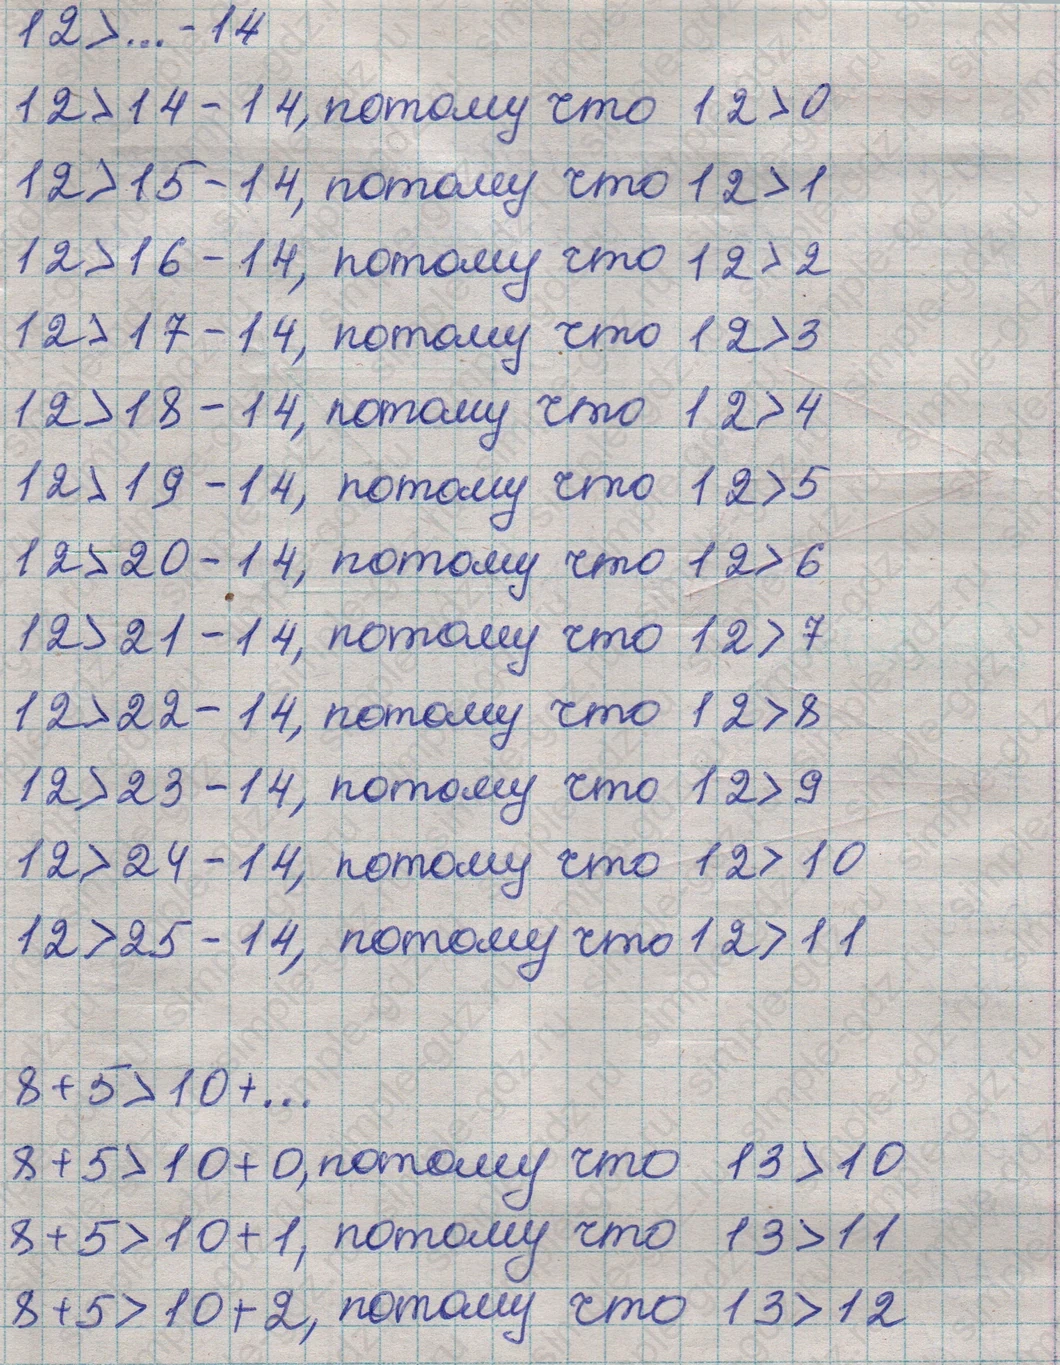 12>...-14
12>14-14, потому что 12>0
12>15-14, потому что 12>1
12>16-14, потому что 12>2
12>17-14, потому что 12>3
12>18-14, потому что 12>4
12>19-14, потому что 12>5
12>20-14, потому что 12>6
12>21-14, потому что 12>7
12>22-14, потому что 12>8
12>23-14, потому что 12>9
12>24-14, потому что 12>10
12>25-14, потому что 12>11
8+5>10+...
8+5>10+0, потому что 13>10
8+5>10+1, потому что 13>11
8+5>10+2, потому что 13>12
simple-gdz.ru